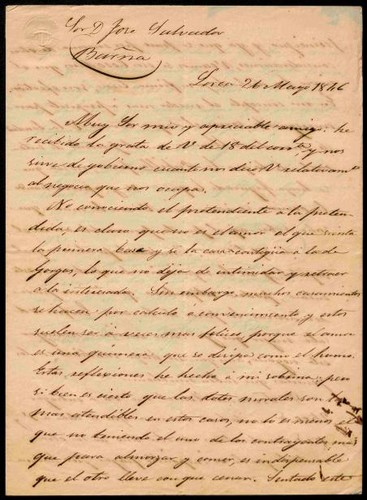 Sor D José Salvador
Barña
Lorca 26 Mayo 1846
Muy Sor mio y apreciable amigo: he
recibido la grata de V de 18 del corrte y nos
sirve de gobierno cuanto nos dice V relativamte
al negocio que nos ocupa.
No conociendo el pretendiente á la preten-
dida, es claro que no es el amor el que sienta
la primera base y si la casa contigua á la de
Gorgas, lo que no dejara de intimidar y retraer
á la interesada. Sin embargo muchos casamientos
se hacen por calculo ó convenimiento y estos
suelen ser á veces mas felices, porque el amor
es una quimera que se disipa como el humo.
Estas reflexiones he hecho á mi sobrina; pero
si bien es cierto que las dotes morales son
mas atendibles en estos casos, no lo es menos el
que no teniendo el uno de los contrayentes mas
que para almorzar y comer, es indispensable
que el otro lleve con que cenar. Sentado este